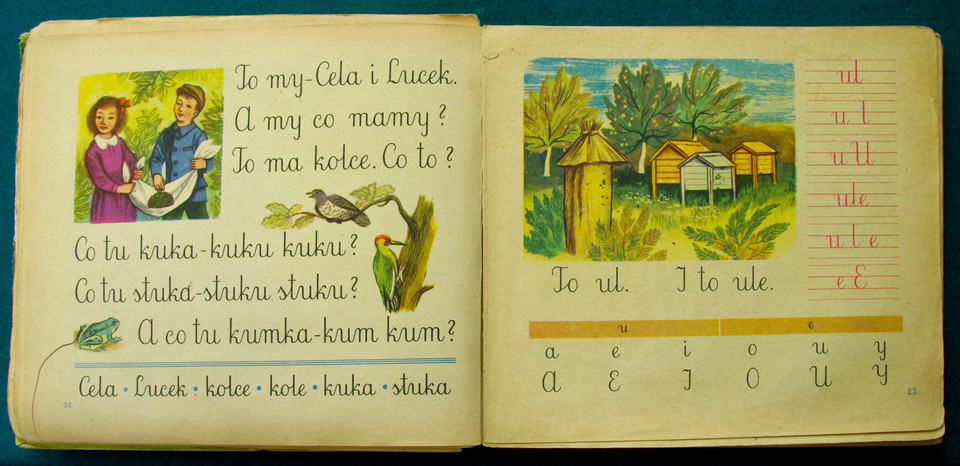 To my-Cela i Lucek.
A my co mamy?
To ma kolce. Co to?
Co tu kuka-kuku kuku?
Co tu stuka-stuku stuku?
A co tu kumka-kum kum?
Cela • Lucek • kolce • kole • kuka • stuka
To ul. I to ule.
u e
a e i o u y
A E I O U Y
23
ul
u l
u U
ule
u l e
e E